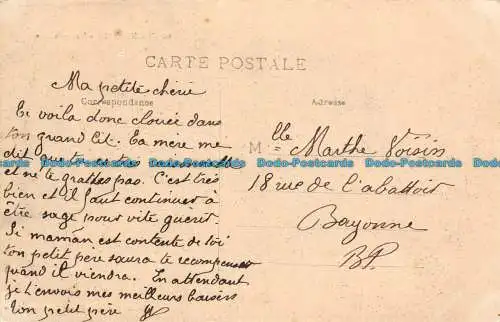 CARTE POSTALE
Correspondance
Adresse
Ma petite chérie
Te voilà donc clouée dans
ton grand lit. Ta mère me
dit que tu es très raisonnable
et ne te grattes pas. C'est très
bien et il faut continuer à
être sage pour vite guérir
Si maman est contente de toi
ton petit père saura te récompenser
quand il viendra. En attendant
je t'envois mes meilleurs baisers
Ton petit père
Mlle Marthe Voisin
18 rue de l'abattoir
Bayonne
B.P.
Dodo-Postcards Dodo-Postcards Dodo-Postcards Dodo-Postcards